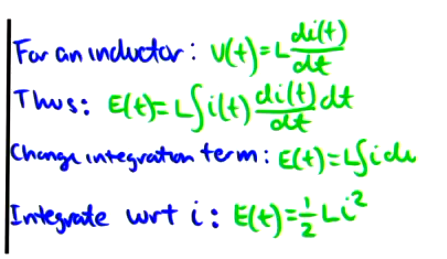 For an inductor: V(t)=L di(t)/dt
Thus: E(t)=L∫i(t) di(t)/dt dt
Change integration term: E(t)=L∫i di
Integrate wrt i: E(t)=½Li²